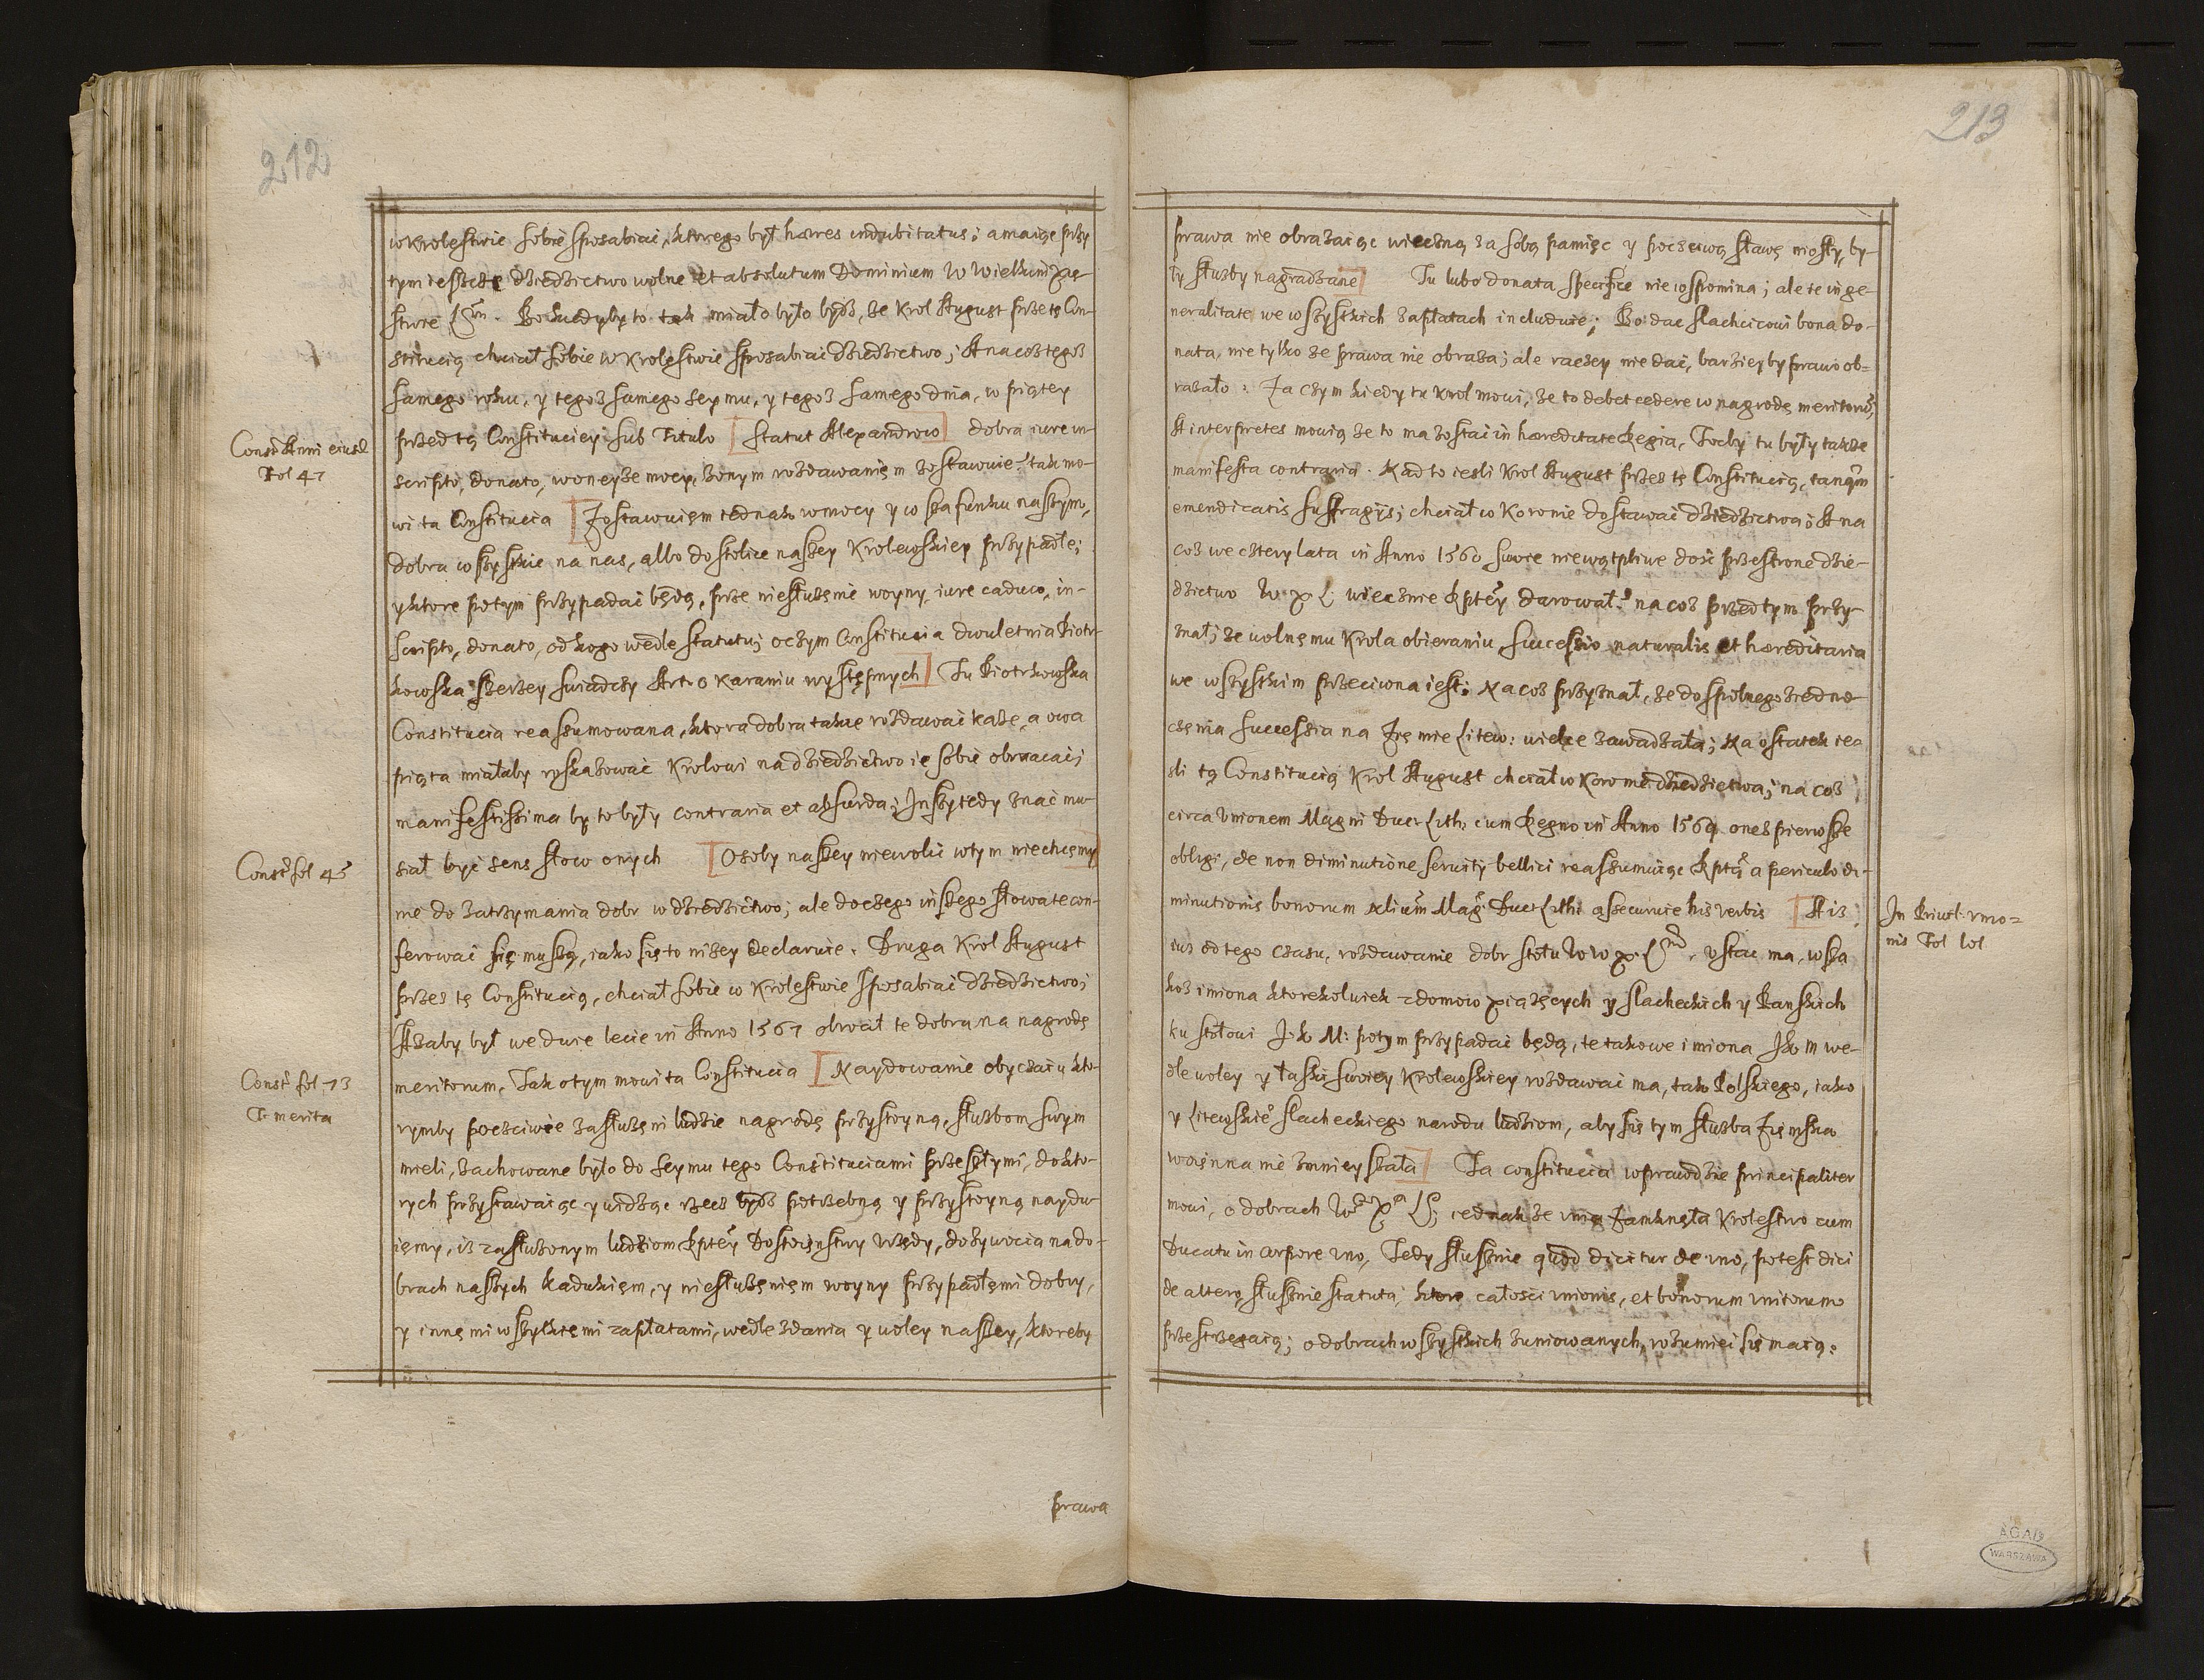 212
w Krolęstwie sobie sposabiai, ktorego był hæres indubitatus; a maiąc przy
tym ieszcze dziedzictwo wolne et absolutum Dominium w Wielkim Xię-
stwie Lſm. Bo kiedyby to tak miało było bydź, że Krol August przez tę Con-
stitucią chciał sobie w Krolęstwie sposabiai dziedzictwo; A na coż tegoż
samego roku, y tegoż samego seymu, y tegoż samego dnia, w piątey
przed tą Constituciey sub Titulo [Statut Alexandrow] dobra iure in-
Constῖ Anni eiusd
Fol 47
scripto, donato, w oneyże mocy, z onym rozdawaniem zostawuie: tak mo-
wi ta Constitucia [Zostawuięm iednak w mocy y w szafunku naszym,
dobra wszystkie na nas, albo do stolice naszey Krolewskiey przypadłe;
y ktore potym przypadai będą, prze niesłużęnie woyny, iure caduco, in-
scripto, donato, od kogo wedle statutu; o czym Constitucia dwuletnia Piotr-
kowska szerzey swiadczy Art: o karaniu wystęmpnych] Tu Piotrkowska
Constitucia reassumowana, ktora dobra takie rozdawai każe, a owa
piąta miałaby roskazowai Krolowi na dziedzictwo ie sobie obracai;
manifestissima by to były contraria et absurda; Inszy tedy znać mu-
siał być sens słow onych [Osoby naszey niewolić w tym niechcęmy]
Constῖ fol 45
nie do zatrzymania dobr w dziedzictwo; ale do czego inszego słowa te con-
ferowai się muszą, iako się to niżey declaruie. Druga Krol August
przez tę Constitucią, chciał sobie w Krolestwie sposabiai dziedzictwo;
Azaby był we dwie lecie in Anno 1567 obrocił te dobra na nagrodę
meritorum, Tak o tym mowi ta Constitucia [Naydowanie obyczaiu kto-
Constῖ fol 73
Tt merita
rymby poczciwie zasłużęni ludzie nagrodę przystoyną, służbom swym
mieli, zachowane było do seymu tego Constituciami przeszłymi, do kto-
rych przystawaiąc y widząc rzecz bydź potrzebną y przystoyną naydu-
ięmy, iż zasłużonym ludziom Rptey Dostoięnstwy Vrzędy, dożywocia na do-
brach naszych kadukięm, y niesłużęnięm woyny przypadłęmi dobry,
y innęmi wszytkięmi zapłatami, wedle zdania y woley naszey, ktoreby
prawa
213
prawa nie obrażaiąc wieczną za sobą pamięc y poczciwą sławę niosły, by-
ły służby nagradzane] Tu lubo donata specifice nie wspomina; ale te in ge-
neralitate we wszystkich zapłatach includuie; Bo dac slachcicowi bona do-
nata, nie tylko że prawa nie obraża; ale raczey nie dai, barziey by prawo ob-
rażało. Za czym kiedy tu Krol mowi, że to debet cedere w nagrodę meritorũ;
A interpretes mowią że to ma zostai in hæreditate Regia, Toćby tu były także
manifesta contraria. Nad to iesli Krol August przez tę Constitucią, tanqm̃
emendicatis suffragijs; chciał w Koronie dostawai dziedzictwa; A na
coż we cztery lata in Anno 1560 swoie niewątpliwe dość przestrone dzie-
dzictwo W. X L wiecznie Rptey darował? na coż przed tym przy-
znał; że wolnęmu Krola obieraniu, Successio naturalis et hæreditaria
we wszystkim przeciwna iest: Na coż przyznał, że do społnego ziedno-
częnia Successia na Zięmie Litew: wielce zawadzała; Na ostatek ieo
sli tą Constitucią Krol August chciał w Koronie dziedzictwa; na coż
circa Vnionem Magni Ducꝰ Lith: cum Regno in Anno 1569 oneż pierwsze
obligi, de non diminutione seruitij bellici reassumuiąc Rptã a periculo di-
minutionis bonorum aliũm Mag: Ducꝰ Lith: assecuruie his verbis [A iż
In Priuil: vnio=
nis Fol lol
iuż od tego czasu, rozdawanie dobr stołu W w X. Lgo, vstac ma, wsza
koż imiona ktorekolwiek z domow Xiążęcych y slacheckich y Panskich
ku stołowi J.k M: potym przypadai będą, te takowe imiona Jk M we-
dle woley y łaski swoiey Krolewskiey rozdawai ma, tak Polskiego, iako
y Litewskie° slacheckiego narodu ludziom, aby się tym służba Zięmska
woięnna nie zmnieyszała] Ta constitucia w prawdzie principaliter
mowi, o dobrach W° X^a L°; iednak że vnia zamknęła Krolestwo cum
Ducatu in corpore vno, Tedy słusznie quod dicitur de vno, potest dici
de altero, słusznie statuta, ktore całości vnionis, et bonorum vnitorum
przestrzegaią; o dobrach wszystkich zuniowanych, rozumiei się maią:
AGAD
WARSZAWA